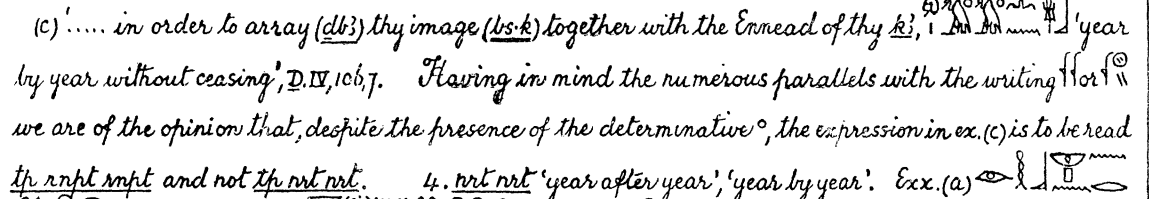 (c) '..... in order to array (dbꜣ) thy image (bs·k) together with the Ennead of thy kꜣ', 'year
by year without ceasing', D.IV,106,7. Having in mind the numerous parallels with the writing or
we are of the opinion that, despite the presence of the determinative °, the expression in ex.(c) is to be read
tp rnpt rnpt and not tp nrt nrt. 4. nrt nrt 'year after year', 'year by year'. Exx.(a)